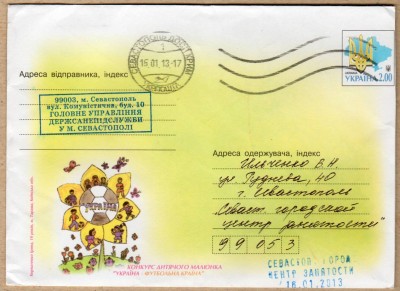 СЕВАСТОПОЛЬ
16 01 13-17
УКРАЇНА
УКРАЇНА 2.00
Адреса відправника, індекс
99003, м. Севастополь
вул. Комуністична, буд. 10
ГОЛОВНЕ УПРАВЛІННЯ
ДЕРЖСАНЕПІДСЛУЖБИ
У М. СЕВАСТОПОЛІ
Адреса одержувача, індекс
Ильченко В.Н
ул. Руднева, 40
г. Севастополь
Севаст. городской
центр занятости
99053
УКРАЇНА
КОНКУРС ДИТЯЧОГО МАЛЮНКА
"УКРАЇНА - ФУТБОЛЬНА КРАЇНА"
ЦЕНТР ЗАНЯТОСТИ
16.01.2013